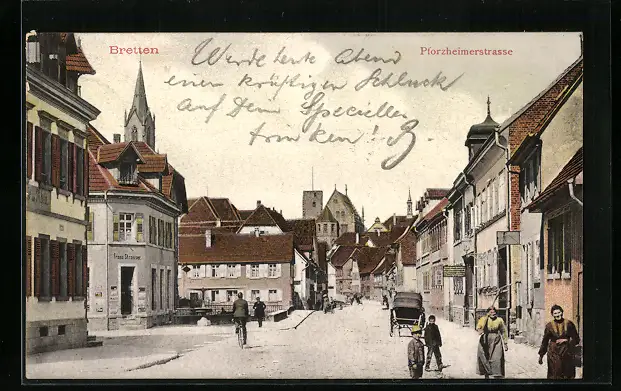 Bretten
Pforzheimerstrasse
Werde heute Abend
einen kräftigen Schluck
auf Dein Spezielles
trinken!